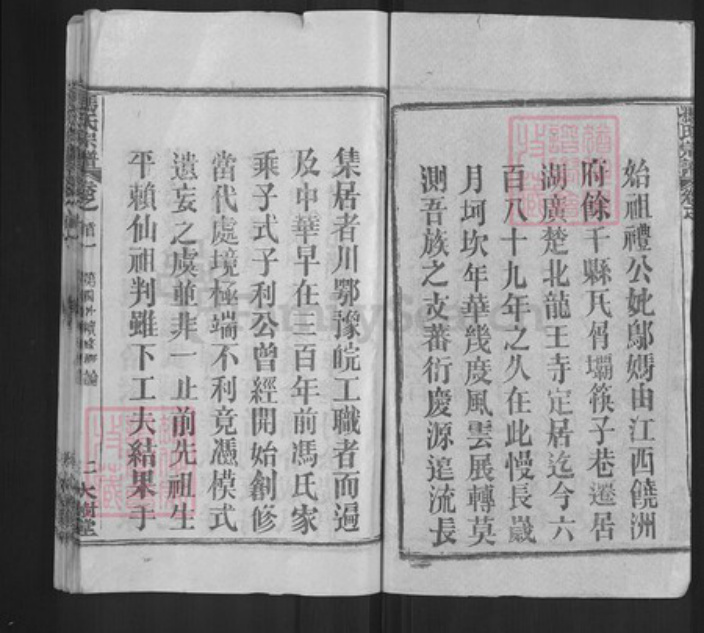 始祖禮公妣鄔媽由江西饒洲
府餘干縣瓦屑壩筷子巷遷居
湖廣楚北龍王寺定居迄今六
百八十九年之久在此慢長歲
月坷坎年華幾度風雲展轉莫
測吾族之支蕃衍慶源遠流長
集居者川鄂豫皖工職者而遍
及中華早在三百年前馮氏家
乘子式子利公曾經開始創修
當代處境極端不利竟憑模式
遺妄之虞並非一止前先祖生
平賴仙祖判雖下工夫結果于
馮氏宗譜 卷之首一
大樹堂
FamilySearch